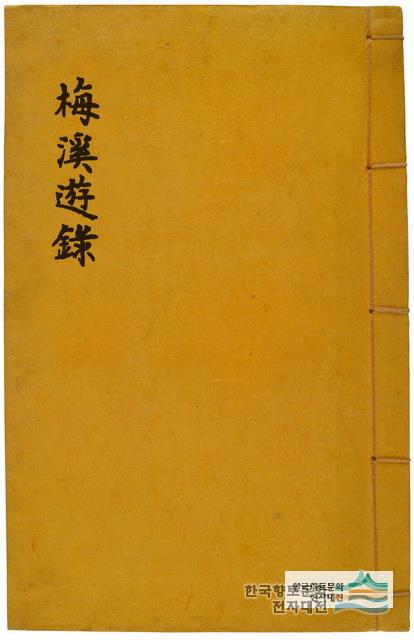 梅溪遊錄
한국향토문화
전자대전
한국향토문화
전자대전